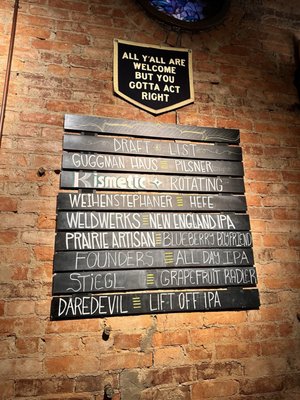 ALL Y'ALL ARE
WELCOME
BUT YOU
GOTTA ACT
RIGHT
DRAFT LIST
GUGGMAN HAUS PILSNER
Kismetic ROTATING
WEIHENSTEPHANER HEFE
WELDWERKS NEW ENGLAND IPA
PRAIRIE ARTISAN BLUEBERRY BOYFRIEND
FOUNDERS ALL DAY IPA
STIEGL GRAPEFRUIT RADLER
DAREDEVIL LIFT OFF IPA